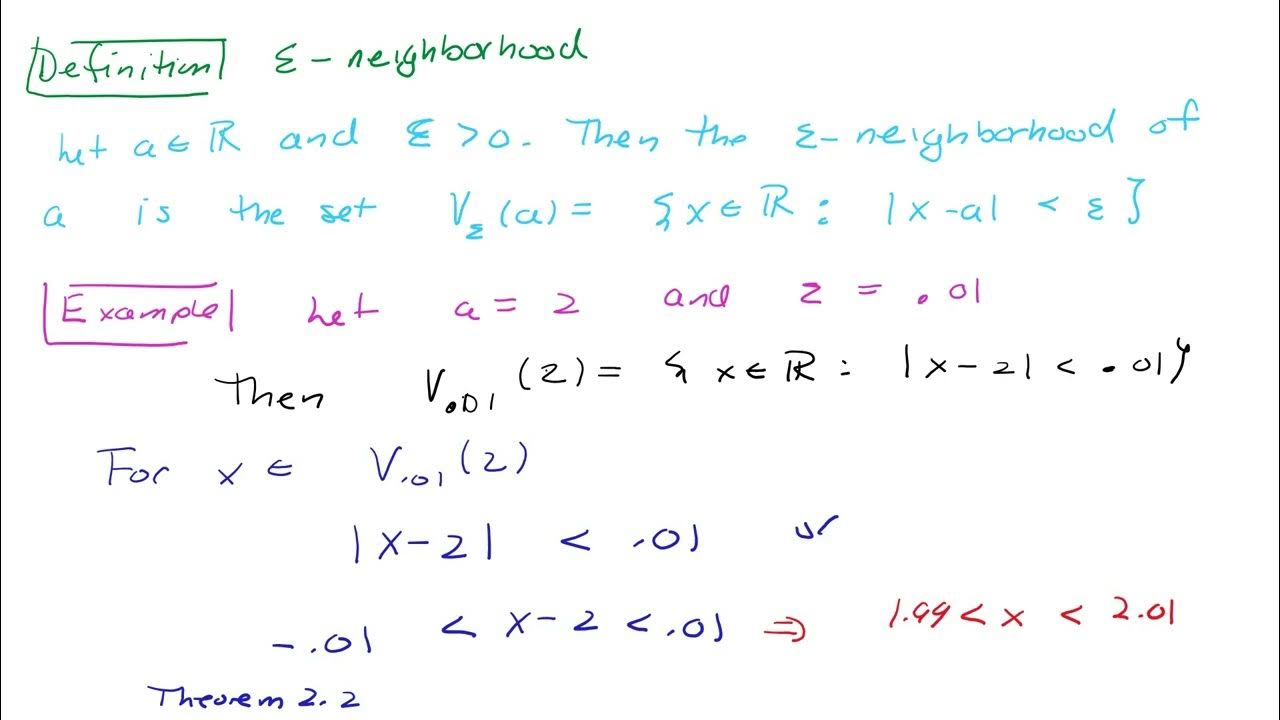 Definition ε-neighborhood
Let a ∈ ℝ and ε > 0. Then the ε-neighborhood of
a is the set V_ε(a) = { x ∈ ℝ : |x-a| < ε }
Example Let a = 2 and ε = .01
Then V_.01 (2) = { x ∈ ℝ : |x-2| < .01}
For x ∈ V_.01 (2)
|x-2| < .01 or
-.01 < x-2 < .01 ⇒ 1.99 < x < 2.01
Theorem 2.2